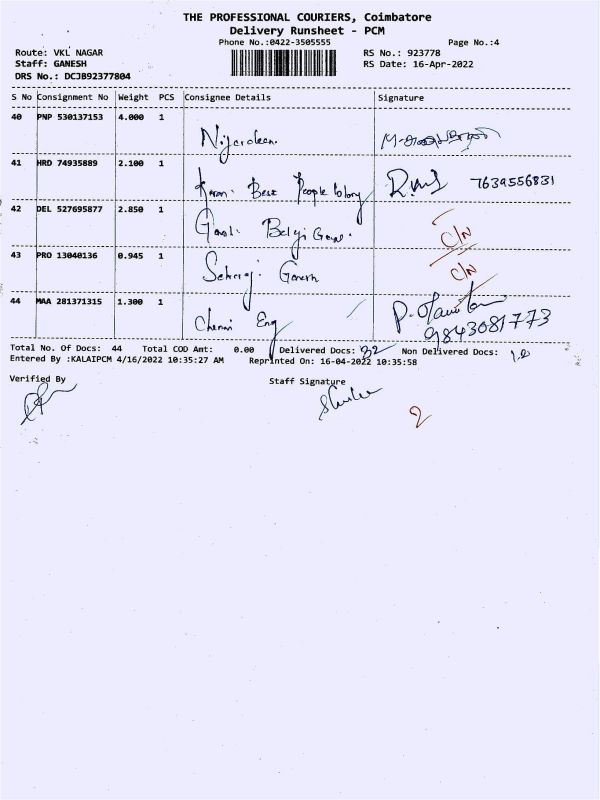 THE PROFESSIONAL COURIERS, Coimbatore
Delivery Runsheet - PCM
Phone No.:0422-3505555 Page No.:4
Route: VKL NAGAR RS No.: 923778
Staff: GANESH RS Date: 16-Apr-2022
DRS No.: DCJB92377804
S No Consignment No Weight PCS Consignee Details Signature
40 PNP 530137153 4.000 1
41 HRD 74935889 2.100 1 Best People 7639556831
42 DEL 527695877 2.850 1 C/N
43 PRO 13040136 0.945 1 Ganesh C/N
44 MAA 281371315 1.300 1 Chennai Eng 9843081773
Total No. Of Docs: 44 Total COD Amt: 0.00 Delivered Docs: 32 Non Delivered Docs: 12
Entered By :KALAIPCM 4/16/2022 10:35:27 AM Reprinted On: 16-04-2022 10:35:58
Verified By Staff Signature
2